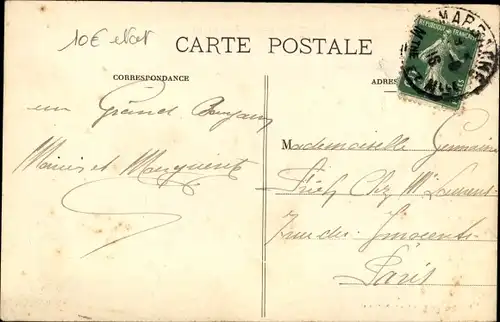 10€ etat
CARTE POSTALE
CORRESPONDANCE
ADRES
REPUBLIQUE FRANÇAISE
un Grand Bonjour
Marius et Marguerite
Mademoiselle Germaine
Chez Mr Laurent
7 rue des Innocents
Paris